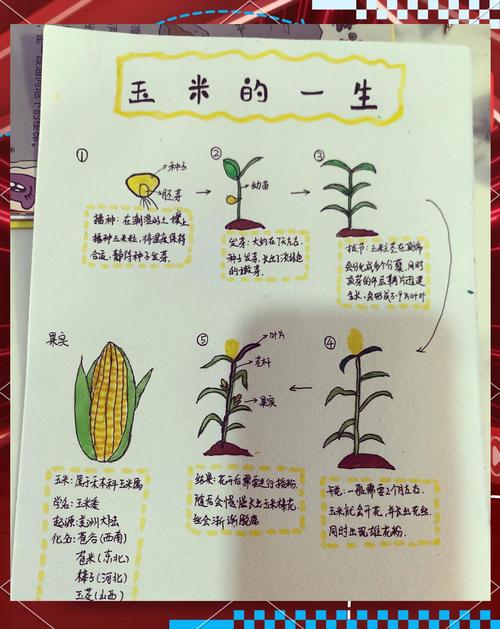 玉米的一生
①
种子
胚芽
播种：在潮湿的土壤上
播种玉米粒，将温度保持
合适，静待种子发芽.
②
幼苗
发芽：大约在7天左右
种子发芽，长出了淡绿色
的嫩芽.
③
拔节：玉米茎在顶端
会分化成多个分蘖，同时
顶芽的
生长，会形成5-9片叶片
④
一般需要2个月左右，
玉米就会开花，并长出花丝，
同时出现雄花粉.
⑤
叶片
花杆
果实
结果：花开后需要进行授粉，
随后会慢慢长出玉米棒花
丝会渐渐脱落
果实
玉米：属于禾本科玉米属
学名：玉蜀黍
起源：美洲大陆
化名：苞谷(西南)
苞米(东北)
棒子(河北)
玉茭(山西)